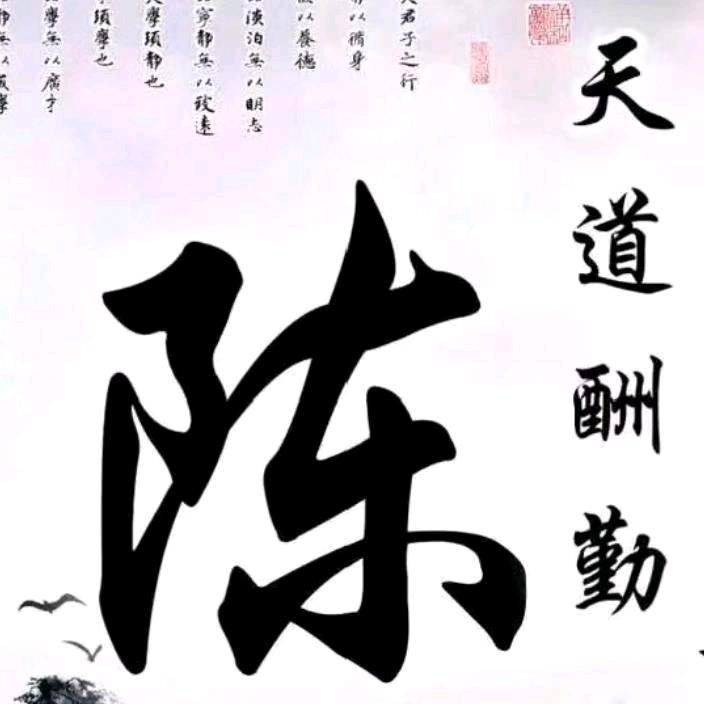 天道酬勤
陈
夫君子之行
以脩身
以養德
淡泊無以明志
寧靜無以致遠
夫學須靜也
須學也
學無以廣才
靜無以成學